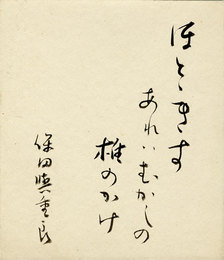 ほとゝきす
あれハむかしの
椎のかけ
保田與重郎